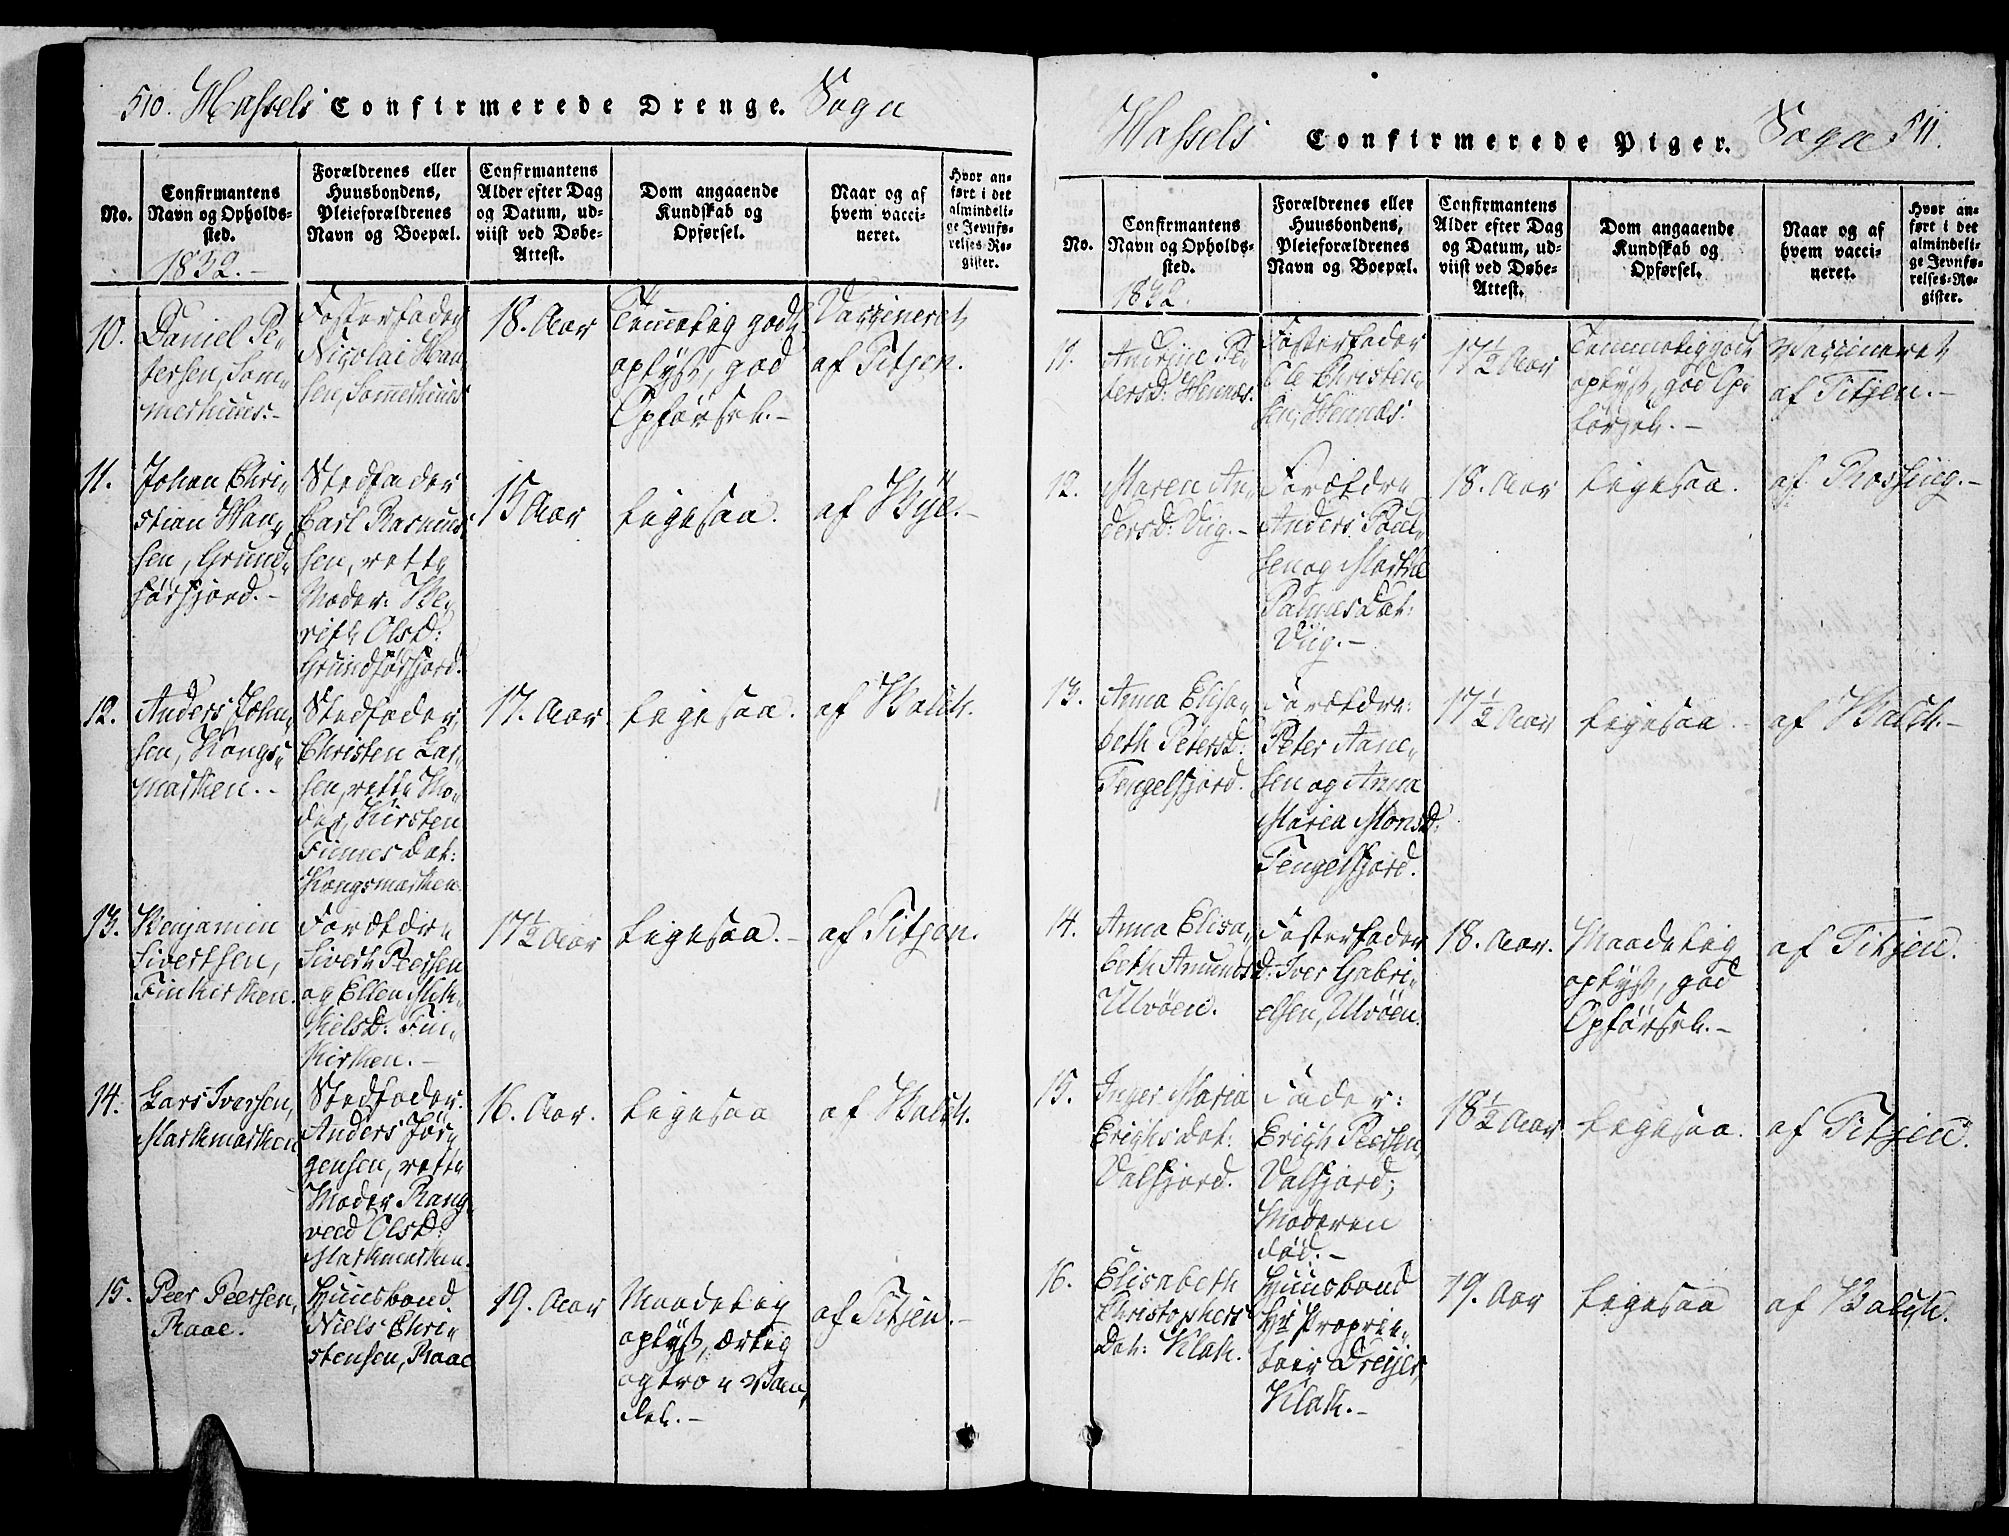 510. Hassels Confirmerede Drenge. Sogn
No.
Confirmantens
Navn og Opholds-
sted.
1832.-
Forældrenes eller
Huusbondens,
Pleieforældrenes
Navn og Boepæl.
Confirmantens
Alder efter Dag
og Datum, ud-
viist ved Døbe-
Attest.
Dom angaaende
Kundskab og
Opførsel.
Naar og af
hvem vacci-
neret.
Hvor an-
ført i det
almindeli-
ge Jevnfø-
relses-Re-
gister.
10.
Daniel Pe-
tersen, Som-
merhuus.-
Fosterfader
Nicolai Han-
sen, Sommerhuus
18. Aar
Temmelig godt
oplyst, god
Opførsel.-
Vaccineret
af Titjen.
11.
Johan Chri-
stian Han-
sen, Grund-
førfjord.-
Stedfader
Carl Rasmus-
sen, rette
Moder: Be-
rith Olsd:
Grundførfjord.
15 Aar
ligesaa.
af Bye.-
12.
Anders John-
sen, Kongs-
marken.-
Stedfader,
Christen Lar-
sen, rette Mo-
der, Kirsten
Finnesdat:
Kongsmarken
17. Aar
ligesaa.
af Balch.
13.
Benjamin
Sivertsen,
Finkirken.
Forældre
Sivert Peersen
og Ellen Mik-
kielsd: Fin-
kirken.-
17½ Aar
ligesaa.-
af Titjen.
14.
Lars Iversen,
Markmarken
Stedfader.
Anders Jør-
gensen, rette
Moder Rang-
veed Olsd:
Markmarken.
16. Aar.
ligesaa
af Balch.
15.
Peer Peersen,
Raae.
Huusbond
Niels Chri-
stensen, Raae
19. Aar
Maadelig
oplyst, ærlig
og tro u Van-
del.-
af Titjen.-
Hassels Confirmerede Piger. Sogn 511.
No.
Confirmantens
Navn og Opholds-
sted.
1832.
Forældrenes eller
Huusbondens,
Pleieforældrenes
Navn og Boepæl.
Confirmantens
Alder efter Dag
og Datum, ud-
viist ved Døbe-
Attest.
Dom angaaende
Kundskab og
Opførsel.
Naar og af
hvem vacci-
neret.
Hvor an-
ført i det
almindeli-
ge Jevnfø-
relses-Re-
gister.
11.
Andrine Pe-
tersd: Hennes.
Fosterfader
Ole Christen-
sen, Hennes.
17½ Aar
Temmelig godt
oplyst, god Op-
førsel.-
Vaccineret
af Titjen.-
12.
Maren An-
dersd: Viig.-
Forældre
Anders Poul-
sen og Marthe
Viig.-
18. Aar
ligesaa.
13.
Anna Elisa-
beth Petersd:
Tengelfjord.
Forældre:
Peter Aane-
sen og Anna
Maria Monsd:
Tengelfjord.
17½ Aar
ligesaa.-
af Balch.-
14.
Anna Elisa-
beth Amunds
Ulvøen.
Fosterfader
d: Iver Gabri-
elsen, Ulvøen.
18. Aar.
Maadelig
oplyst, god
Opførsel.-
af Titjen.
15.
Inger Maria
Erichsdat:
Valfjord.
Fader:
Erich Peersen,
Valfjord;
Moderen
død.-
18½ Aar
ligesaa.
af Titjen.
16.
Elisabeth
Christophers
Dat: Klak.
Huusbond
Hr Proprie-
tair Dreyer,
Klak.-
19. Aar
ligesaa
af Balch.